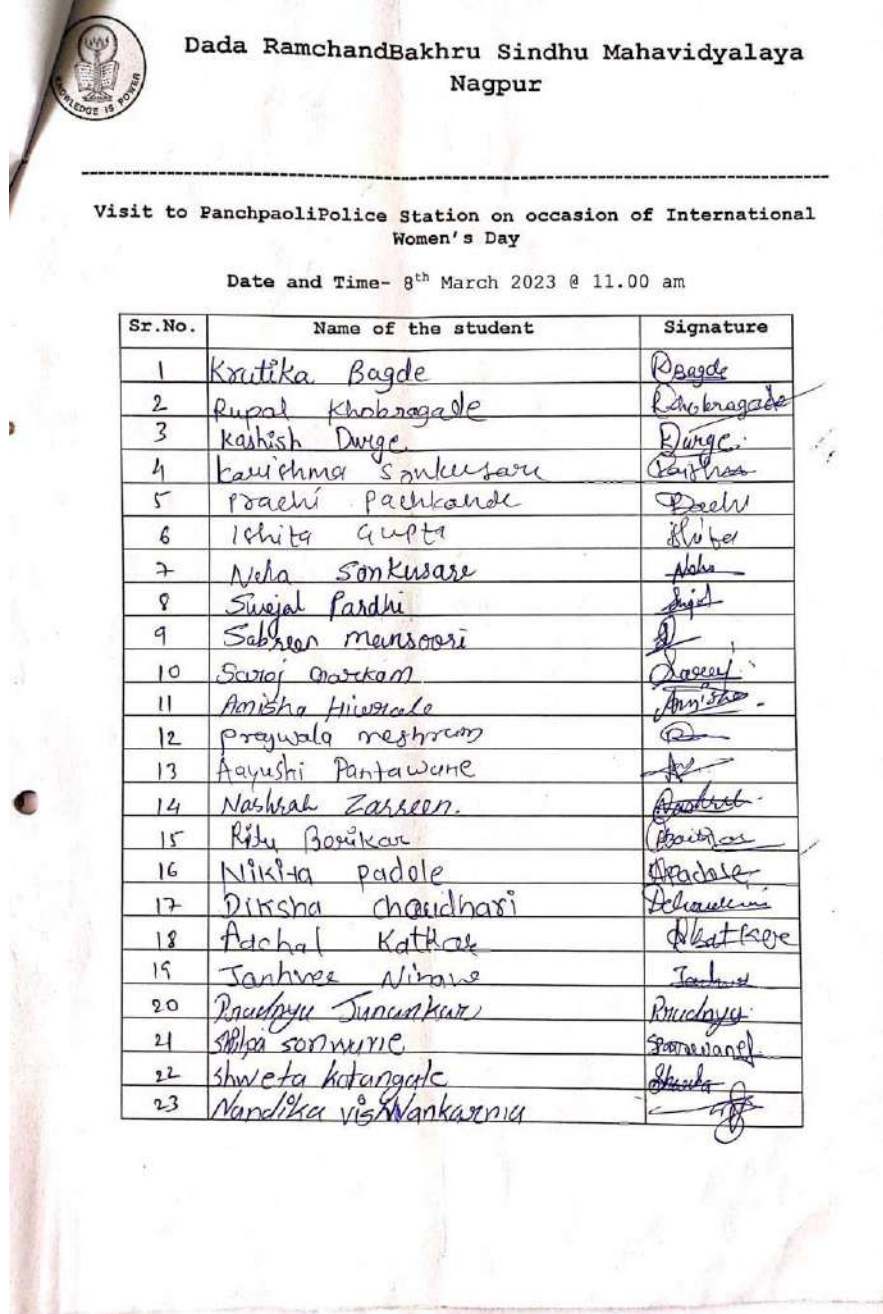 KNOWLEDGE IS POWER
Dada RamchandBakhru Sindhu Mahavidyalaya
Nagpur
Visit to PanchpaoliPolice Station on occasion of International
Women's Day
Date and Time- 8th March 2023 @ 11.00 am
Sr.No. Name of the student Signature
1 Krutika Bagde RBagde
2 Rupal Khobragade RKhobragade
3 Kashish Durge Durge
4 Karishma Sonkusare
5 Prachi Pachkande
6 Ishita Gupta
7 Neha Sonkusare Neha
8 Swejal Pardhi
9 Sabreen mansoori
10 Saroj Markam
11 Amisha Hiwrale Amisha
12 prajwala meshram
13 Aayushi Pantawane
14 Nashrah Zarreen.
15 Ritu Borikar
16 Nikita padole NPadole
17 Diksha chaudhari
18 Aachal Kathar
19 Janhvee Nirave
20 Pradnya Junankar Pradnya
21 shilpa sonwane
22 shweta katangale
23 Nandika vishwankarma